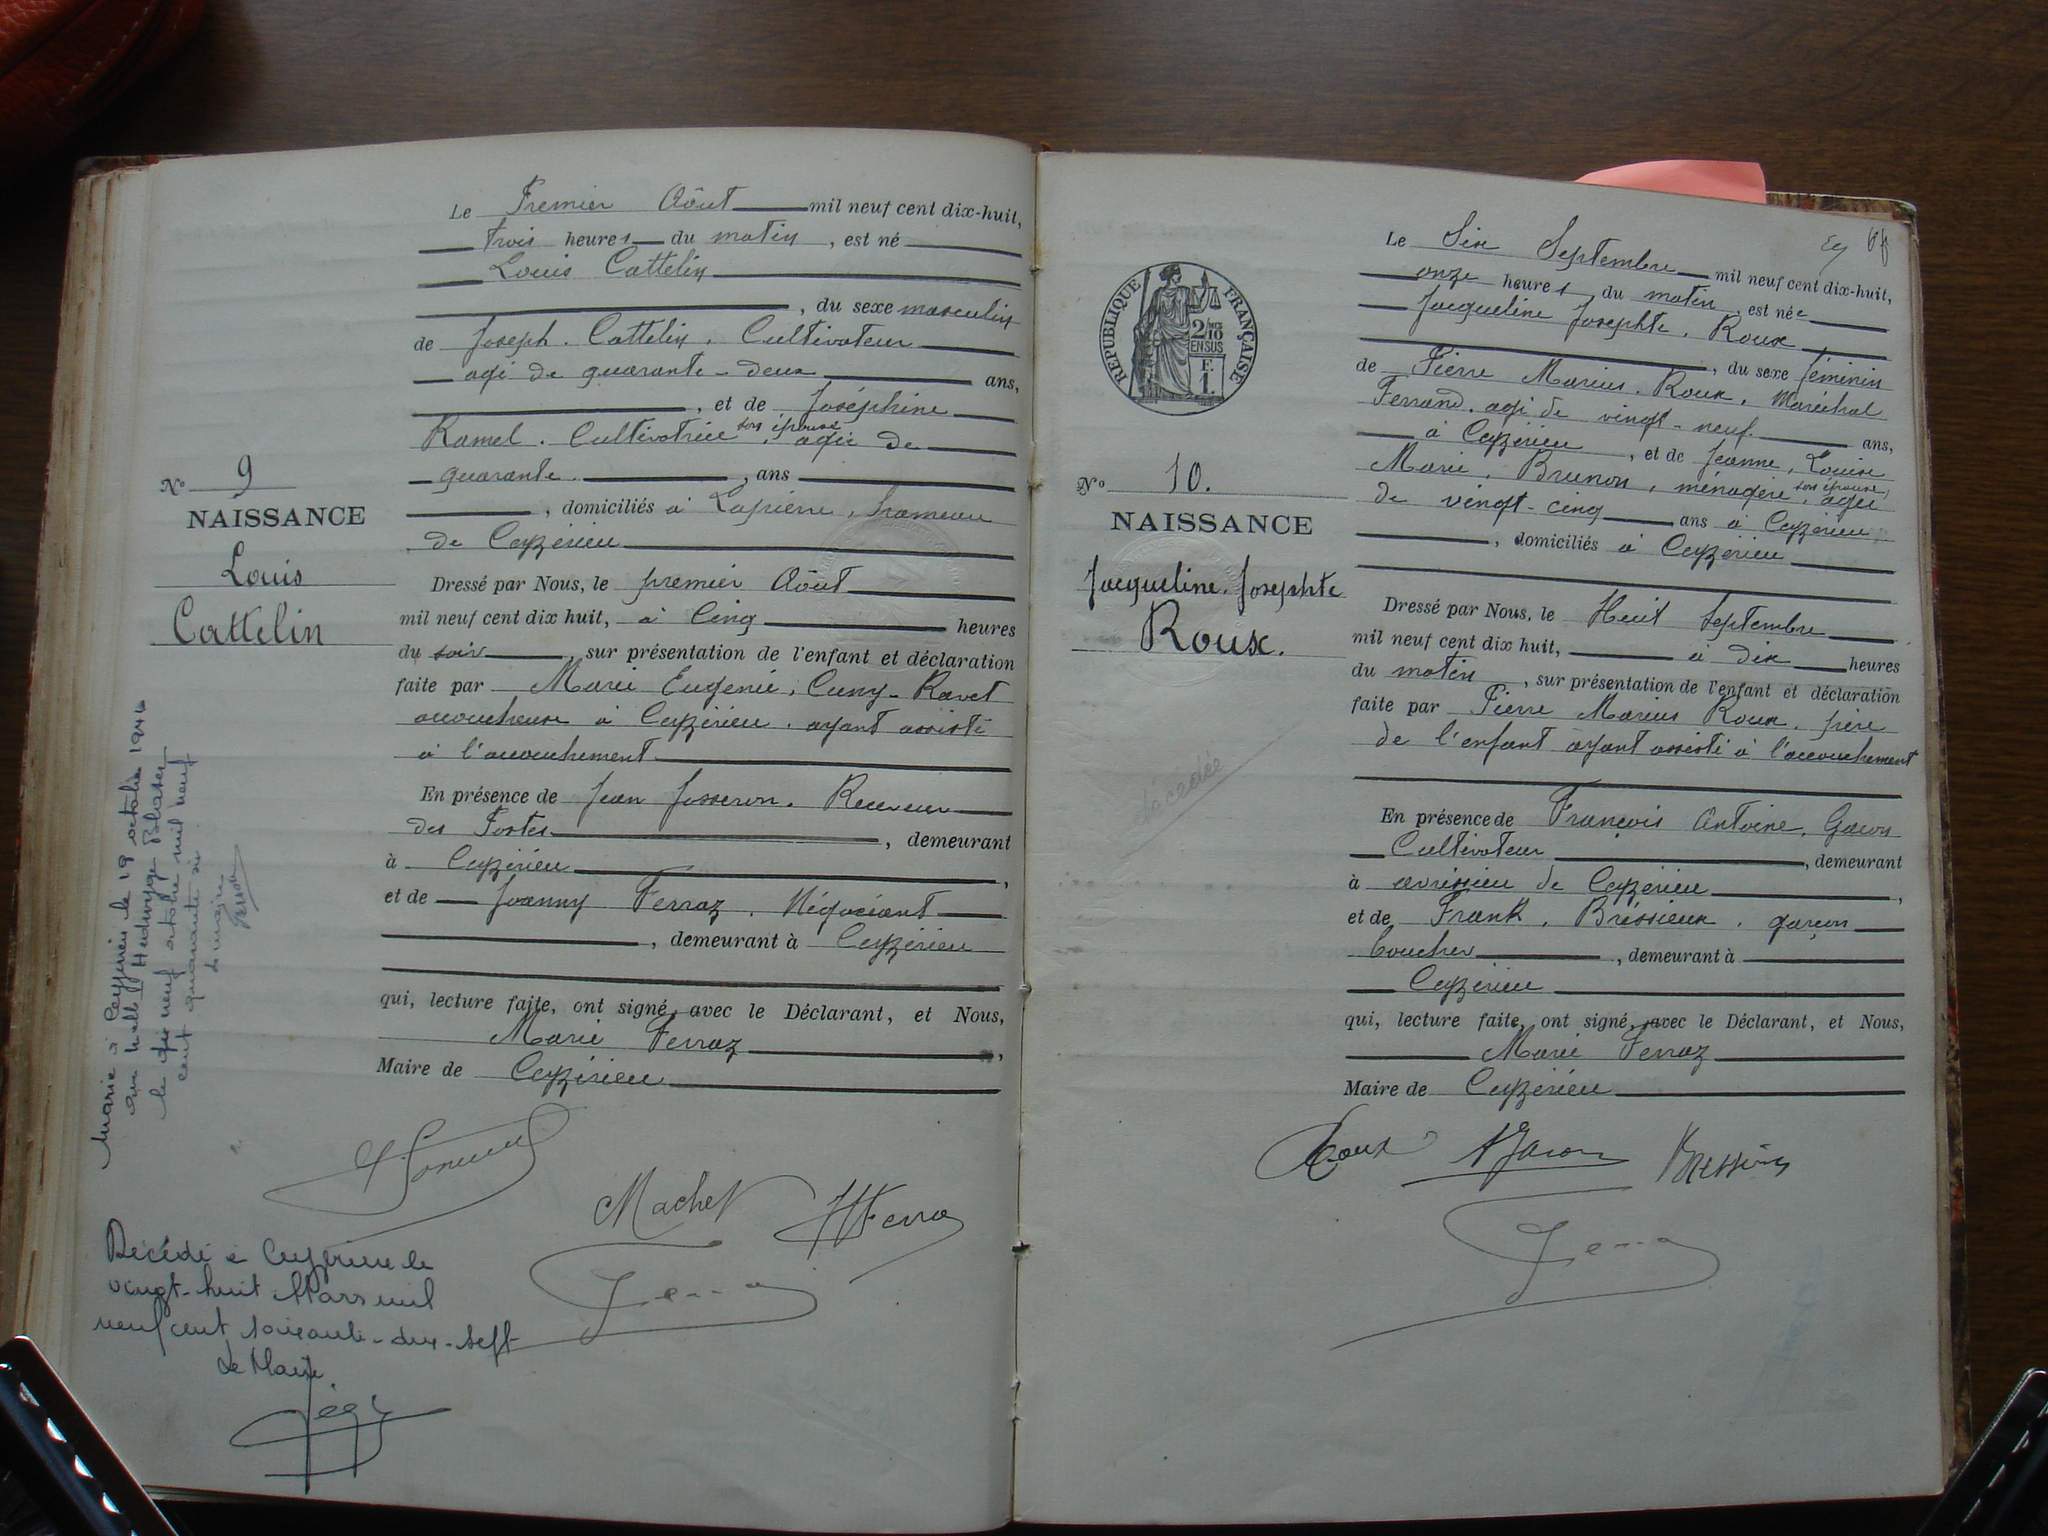 Le Premier Août mil neuf cent dix-huit,
trois heures du matin, est né
Louis Cattelin
, du sexe masculin
de Joseph. Cattelin. Cultivateur
agé de quarante-deux ans,
, et de Joséphine
Ramel. Cultivatrice son épouse, agée de
quarante. , ans
, domiciliés à Lapierre, hameau
de Ceyzérieu
Dressé par Nous, le premier Août
mil neuf cent dix huit, à Cinq heures
du soir, sur présentation de l'enfant et déclaration
faite par Marie Eugenie, Cuny-Ravet
accoucheuse à Ceyzérieu. ayant assisté
à l'accouchement
En présence de Jean Josseron. Receveur
des Postes, demeurant
à Ceyzérieu,
et de Joanny Ferraz. Négociant
, demeurant à Ceyzérieu
qui, lecture faite, ont signé, avec le Déclarant, et Nous,
Marie Ferraz,
Maire de Ceyzérieu
No 9
NAISSANCE
Louis
Cattelin
Marié à Ceyzérieu le 19 octobre 1946
avec Melle Hedwyge Blaser
le dix neuf octobre mil neuf
cent quarante six
Le maire
Machet
Ferra
Décédé à Ceyzérieu le
vingt-huit Mars mil
neuf cent soixante-dix-sept
Le Maire
RÉPUBLIQUE FRANÇAISE
2/10
EN SUS
F.
1.
No 10.
NAISSANCE
Jacqueline. Josephte
Roux.
décédée
Le Six Septembre mil neuf cent dix-huit,
onze heures du matin, est née
Jacqueline Josephte. Roux
, du sexe féminin
de Pierre Marius. Roux. Maréchal
Ferrand. agé de vingt-neuf. ans,
à Ceyzérieu, et de Jeanne, Louise
Marie, Brunon, ménagère son épouse, agée
de vingt-cinq ans à Ceyzérieu
, domiciliés à Ceyzérieu
Dressé par Nous, le Huit Septembre
mil neuf cent dix huit, à dix heures
du matin, sur présentation de l'enfant et déclaration
faite par Pierre Marius Roux. père
de l'enfant ayant assisté à l'accouchement
En présence de François Antoine. Gavon
Cultivateur, demeurant
à avrissieu de Ceyzérieu,
et de Frank. Bréssieux. garçon
boucher, demeurant à
Ceyzérieu
qui, lecture faite, ont signé, avec le Déclarant, et Nous,
Marie Ferraz
Maire de Ceyzérieu
Roux